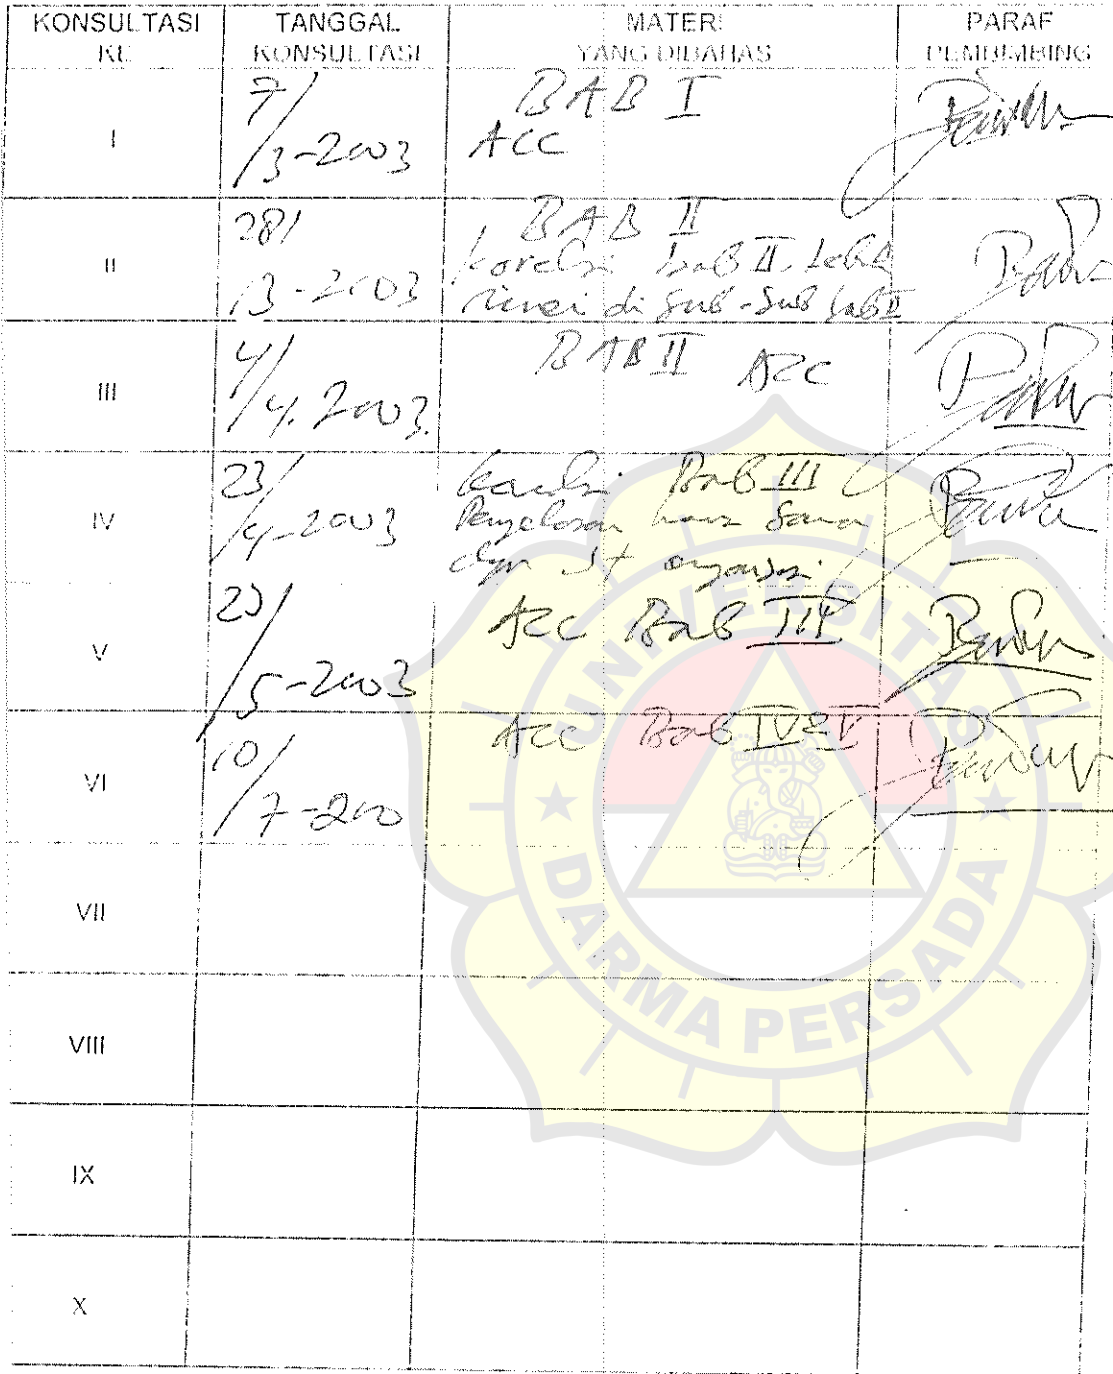 KONSULTASI KE TANGGAL KONSULTASI MATERI YANG DIBAHAS PARAF PEMBIMBING
I 7/3-2003 BAB I
ACC
II 28/3-2003 BAB II
Koreksi bab II. Lebih
rinci di Sub-Sub bab II
III 4/4.2003. BAB II ACC
IV 23/4-2003 Bab III
Penjelasan harus sama
dgn st organisasi.
V /5-2003 ACC Bab III
VI 10/7-200 ACC Bab IV & V
VII
VIII
IX
X
UNIVERSITAS
DARMA PERSADA